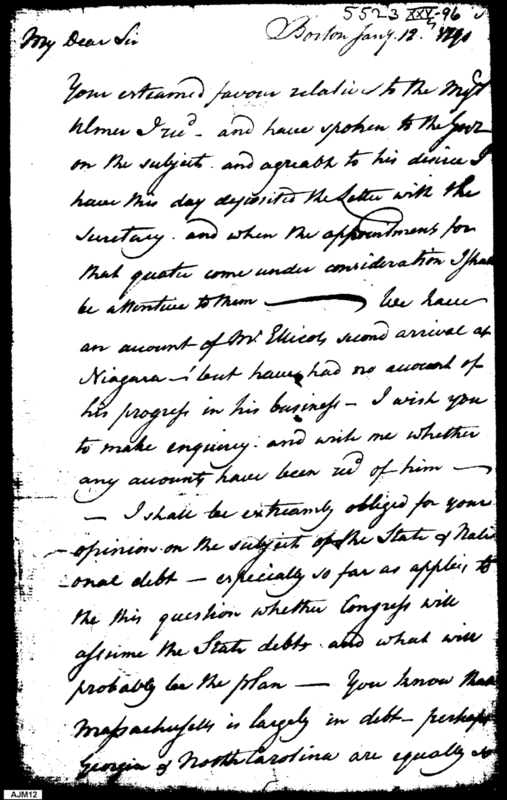 5523 XXV-96
My Dear Sir Boston Jany. 12. 1790
Your esteemed favour relative to the Majr
Ulmer I recd - and have spoken to the Govr
on the subject. and agreable to his desire I
have this day deposited the Letter with the
Secretary. and when the appointments for
that quater come under consideration I shall
be attentive to them — We have
an account of Mr Ellicots second arrival at
Niagara — but have had no account of
his progress in his business — I wish you
to make enquirey. and write me whether
any accounts have been recd of him —
— I shall be extreamly obliged for your
opinion on the subject of the State & Nati
-onal debt — especially so far as applies to
the this question whether Congress will
assume the State debts. and what will
probably be the plan — You know that
Massachusetts is largely in debt — perhaps
Georgia & North Carolina are equally so
AJM12